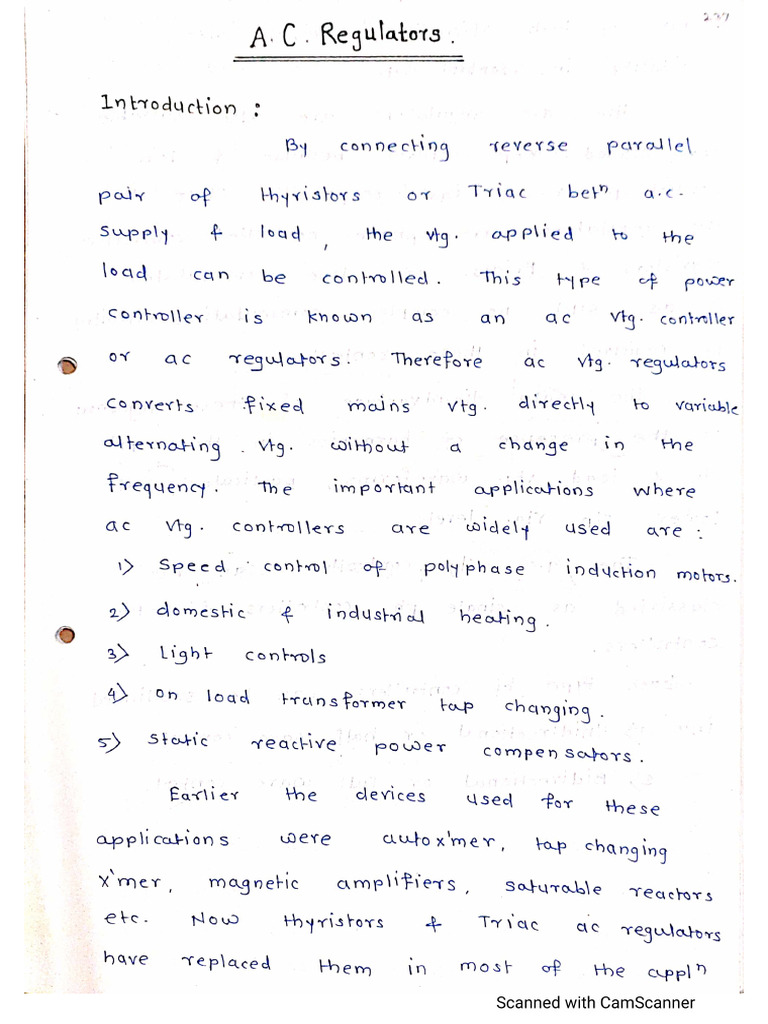 237
A.C. Regulators.
Introduction :
By connecting reverse parallel
pair of thyristors or Triac betⁿ a.c.
supply & load, the vtg. applied to the
load can be controlled. This type of power
controller is known as an ac vtg. controller
or ac regulators. Therefore ac vtg. regulators
converts fixed mains vtg. directly to variable
alternating vtg. without a change in the
frequency. The important applications where
ac vtg. controllers are widely used are :
1) Speed control of polyphase induction motors.
2) domestic & industrial heating.
3) Light controls
4) on load transformer tap changing.
5) static reactive power compensators.
Earlier the devices used for these
applications were autox'mer, tap changing
x'mer, magnetic amplifiers, saturable reactors
etc. Now thyristors & Triac ac regulators
have replaced them in most of the applⁿ
Scanned with CamScanner